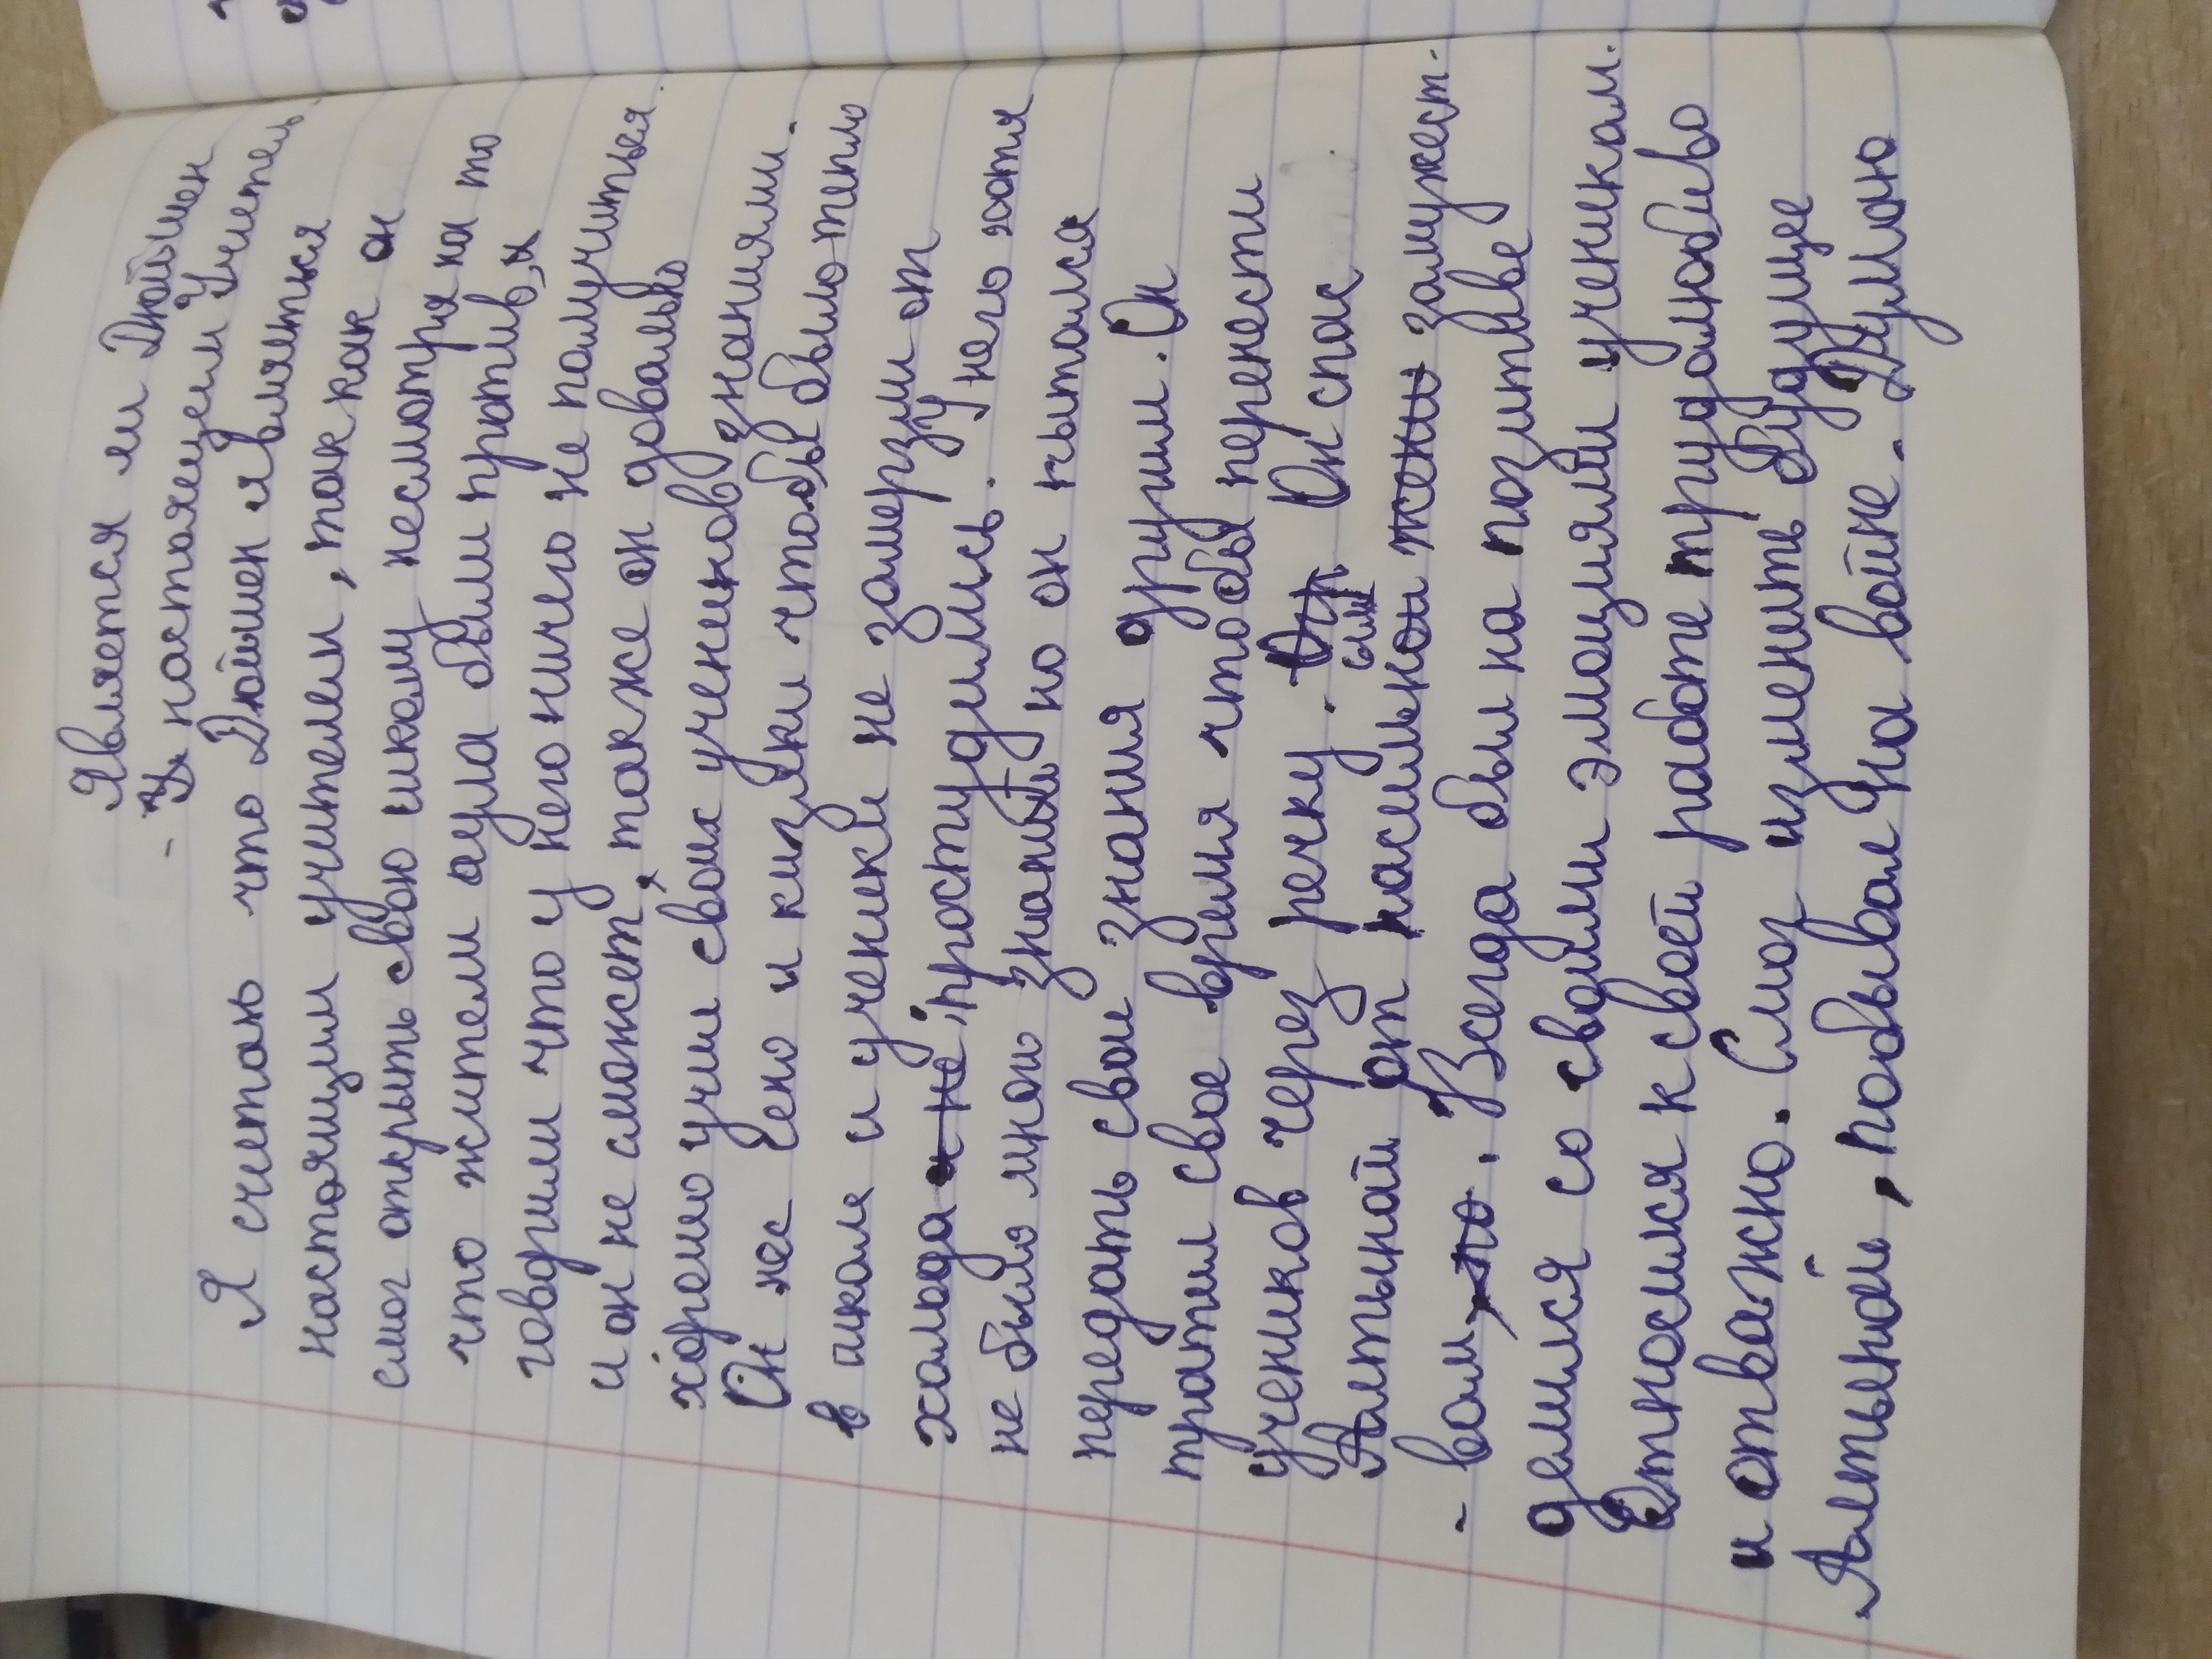 Является ли Дюйшен
- настоящем Учитель
Я считаю что Дюйшен является
настоящим учителем, так как он
смог открыть свою школу несмотря на то
что жители аула были против, и
говорили что у него ничего не получиться.
и он не сможет, также он довально
хорошо учил своих учеников знаниями.
Он нёс сено и кизяки чтобы было тепло
в школе и ученики не замерзли от
холода и не простудились. У него хотя
не было много знаний но он пытался
передать свои знания другим. Он
тратил свое время чтобы перенести
учеников через речку. Он Он спас
Алтынай от насильной жени замужест-
- вам, то. Всегда был на позитиве
делился со своими эмоциями ученикам.
Относился к своей работе трудолюбиво
и отважно. Смог изменить Будущее
Алтынай, побывал На войне. Думаю